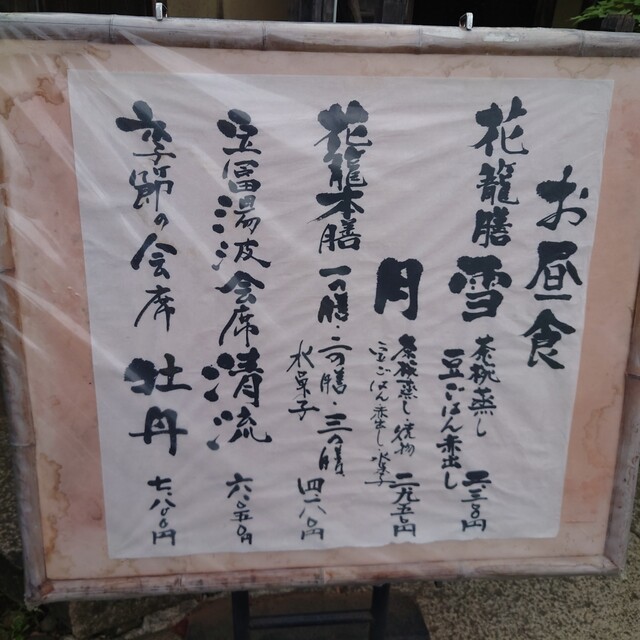 お昼食
花籠膳 雪 茶椀蒸し
豆ごはん 赤出し 二三一〇円
月 茶椀蒸し 焼物
豆ごはん 赤出し 水菓子 二九五〇円
花籠本膳 一の膳・二の膳 三の膳
水菓子 四六二〇円
豆富湯波会席 清流 六〇五〇円
季節の会席 牡丹 七八〇〇円